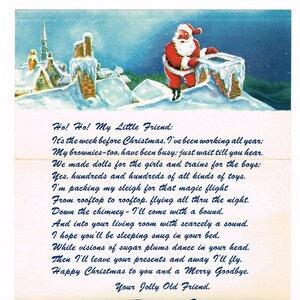 Ho! Ho! My Little Friend:
It's the week before Christmas, I've been working all year;
My brownies-too, have been busy; just wait till you hear.
We made dolls for the girls and trains for the boys;
Yes, hundreds and hundreds of all kinds of toys.
I'm packing my sleigh for that magic flight
From rooftop to rooftop, flying all thru the night.
Down the chimney - I'll come with a bound,
And into your living room with scarcely a sound.
I hope you'll be sleeping snug in your bed,
While visions of sugar plums dance in your head.
Then I'll leave your presents and away I'll fly,
Happy Christmas to you and a Merry Goodbye.
Your Jolly Old Friend,